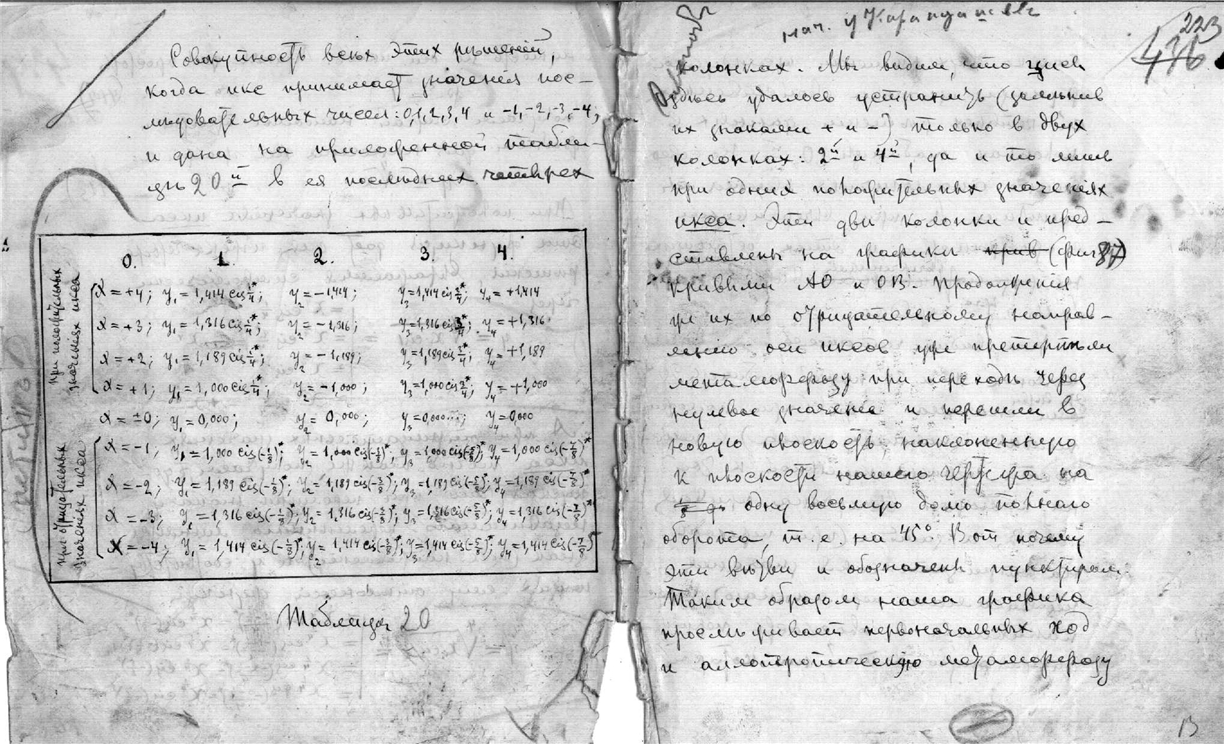 Совокупность всѣх этих рѣшений,
когда икс принимает значения пос-
лѣдовательных чисел: 0,1,2,3,4 и -1,-2,-3,-4,
и дана на приложенной табли-
цѣ 20й в ея послѣдних четырех
0. 1. 2. 3. 4.
при положительных значениях икса
x = +4; y₁ = 1,414 cis; y₂ = -1,414; y₃ = 1,414 cis; y₄ = +1,414
x = +3; y₁ = 1,316 cis; y₂ = -1,316; y₃ = 1,316 cis; y₄ = +1,316
x = +2; y₁ = 1,189 cis; y₂ = -1,189; y₃ = 1,189 cis; y₄ = +1,189
x = +1; y₁ = 1,000 cis; y₂ = -1,000; y₃ = 1,000 cis; y₄ = +1,000
x = ±0; y₁ = 0,000; y₂ = 0,000; y₃ = 0,000; y₄ = 0,000
при отрицательных значениях икса
x = -1; y₁ = 1,000 cis(-⅛)*; y₂ = 1,000 cis(-⅜)*; y₃ = 1,000 cis(-⅝)*; y₄ = 1,000 cis(-⅞)*
x = -2; y₁ = 1,189 cis(-⅛)*; y₂ = 1,189 cis(-⅜)*; y₃ = 1,189 cis(-⅝)*; y₄ = 1,189 cis(-⅞)*
x = -3; y₁ = 1,316 cis(-⅛)*; y₂ = 1,316 cis(-⅜)*; y₃ = 1,316 cis(-⅝)*; y₄ = 1,316 cis(-⅞)*
x = -4; y₁ = 1,414 cis(-⅛)*; y₂ = 1,414 cis(-⅜)*; y₃ = 1,414 cis(-⅝)*; y₄ = 1,414 cis(-⅞)*
Таблица 20
нач. у
223
416
колонках. Мы видим, что
здѣсь удалось устранить (замѣнив
их знаками + и -) только в двух
колонках: 2й и 4й, да и то лишь
при одних положительных значениях
икса. Эти двѣ колонки и пред-
ставлены на графикѣ крив (фиг 87)
кривыми АО и ОВ. Продолжения
же их по отрицательному направ-
лению оси иксов уже претерпѣли
метаморфозу при переходѣ через
нулевое значение и перешли в
новую плоскость, наклоненную
к плоскости нашего чертежа на
одну восьмую долю полнаго
оборота, т.е. на 45°. Вот почему
эти вѣтви и обозначены пунктиром.
Таким образом наша графика
прослѣживает первоначальных ход
и аллотропическую метаморфозу
13